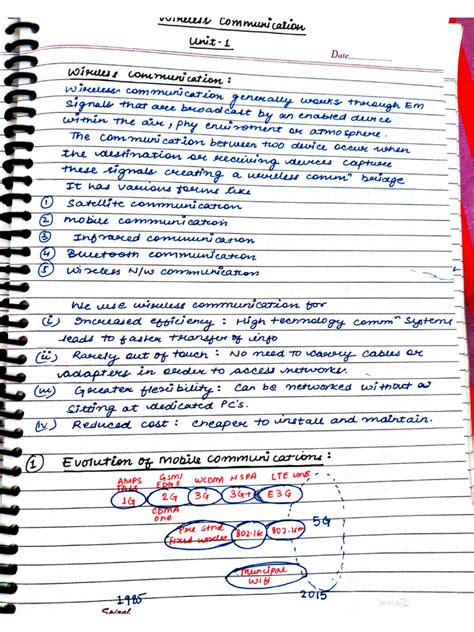 Wireless Communication
Unit-1
Date
Wireless communication :
Wireless communication generally works through Em
signals that are broadcast by an enabled device
within the air, phy enviroment or atmosphere.
The communication between two device occur when
the destination or receiving devices capture
these signals creating a wireless commⁿ bridge
It has various forms like
① Satellite communication
② mobile communication
③ Infrared communication
④ Bluetooth communication
⑤ Wireless N/w communication
We use wireless communication for
(i) Increased efficiency : High technology commⁿ systems
leads to faster transfer of info
(ii) Rarely out of touch : No need to carry cables or
adapters in order to access networks.
(iii) Greater flexibility : Can be networked without
sitting at dedicated PC's.
(iv) Reduced cost : cheaper to install and maintain.
① Evolution of Mobile Communications :
AMPS GSM/ WCDMA HSPA LTE
EDGE
1G 2G 3G 3G+ E3G
CDMA
one
5G
Fixed 802.16e 802.16m
Municipal
Wifi
1985 2015
Spinal